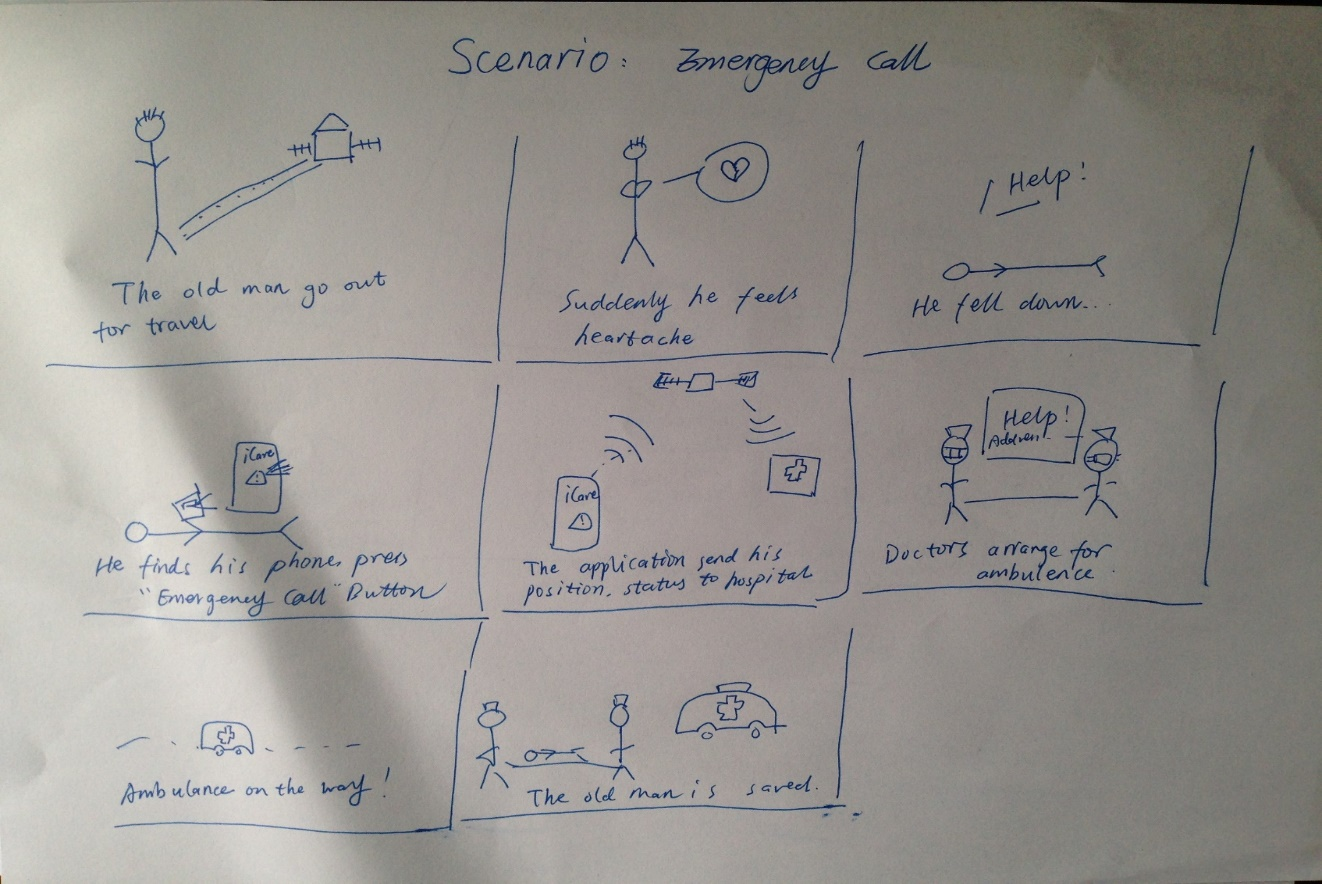 Scenario: Emergency Call
The old man go out
for travel
Suddenly he feels
heartache
Help!
He fell down...
iCare
He finds his phone, press
"Emergency Call" Button
iCare
The application send his
position, status to hospital
Help!
Doctors arrange for
ambulence.
Ambulance on the way!
The old man is saved.